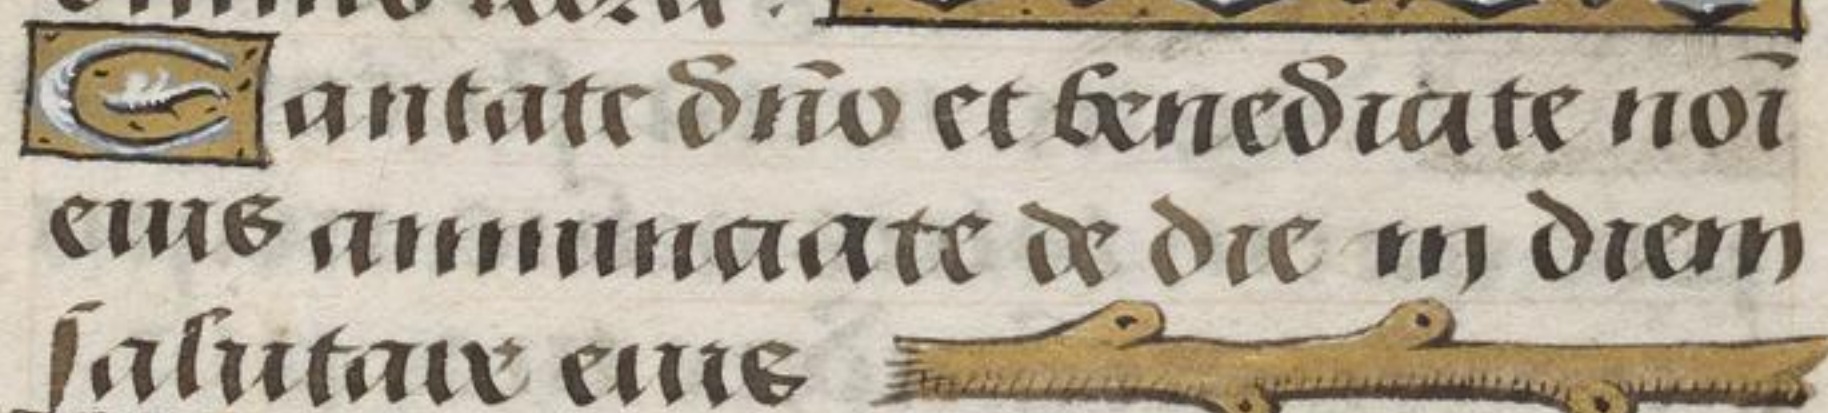 Cantate dño et benedicite noı̄
eius annunciate de die in diem
salutare eius